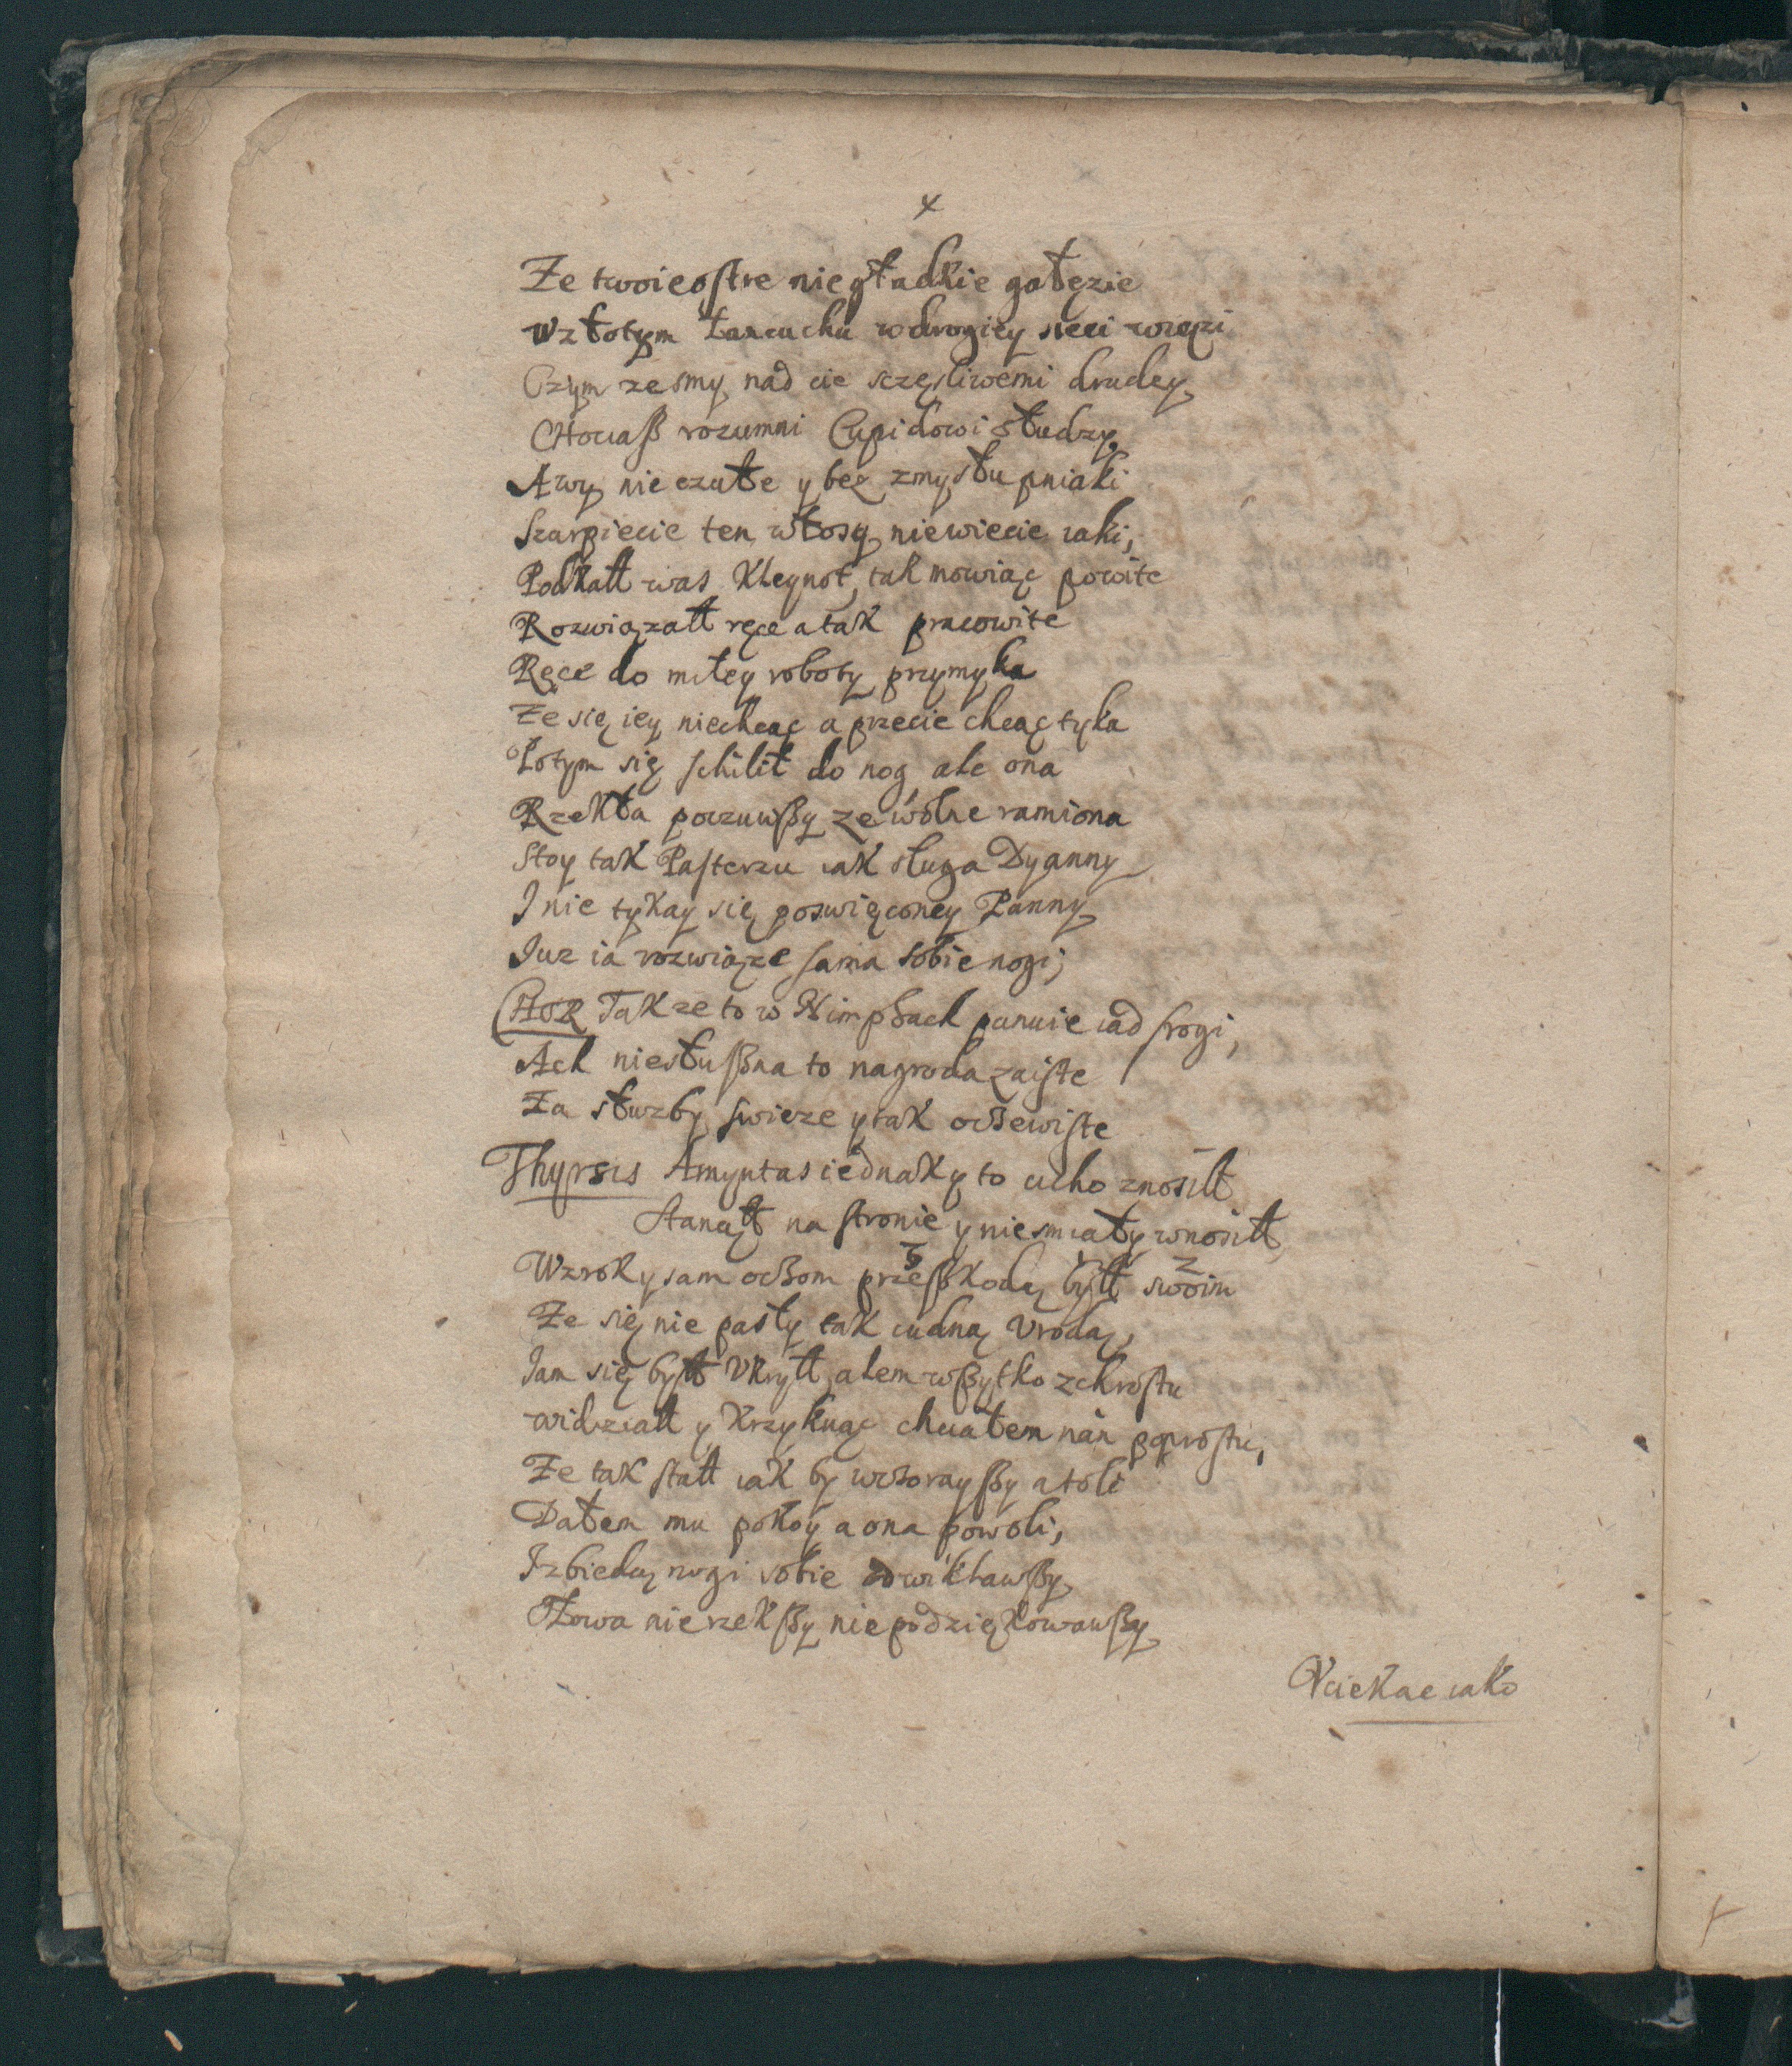 x
Ze twoie ostre nie gładkie gałęzie
W złotym łancuchu w drogiey sieci więzi
Czym zesmy nad cie sczęsliwemi drudzy
CHociaß rozumni Cupidowi słudzy
A wy nie czułe y bez zmysłu pniaki
Szarpiecie ten włosy niewiecie iaki,
Podkałł was Kleynot, tak mowiąc powite
Rozwiązałł ręce a tak pracowite
Ręce do miłey roboty przymyka
Ze się iey niechcąc a przecie chcąc tyka
Potym się schilił do nog ale ona
Rzekła poczuwßy ze wolne ramiona
Stoy tak Pasterzu iak sługa Dyanny
I nie tykay się poswięconey Panny
Iuz ia rozwiąze sama sobie nogi;
CHOR Takze to w Nimphach panuie iad srogi,
Ach niesłußna to nagroda zaiste
Za słuzby swieze y tak oczewiste
Thyrsis Amyntas iednak y to cicho znosiłł
Stanąłł na stronie y niesmiały wnosiłł
Wzrok y sam oczom przeßkodą byłł swoim
Ze się nie pasły tak cudną Vrodą,
Iam się byłł Vkryłł, alem wßytko z chrostu
widziałł y Krzyknąc chciałem nań poprostu,
Ze tak stałł iak by wczorayßy atoli
Dałem mu pokoy a ona powoli,
Izbiedą nogi sobie odwikławßy
Słowa nie rzekßy nie podziękowawßy
Vciekac iako